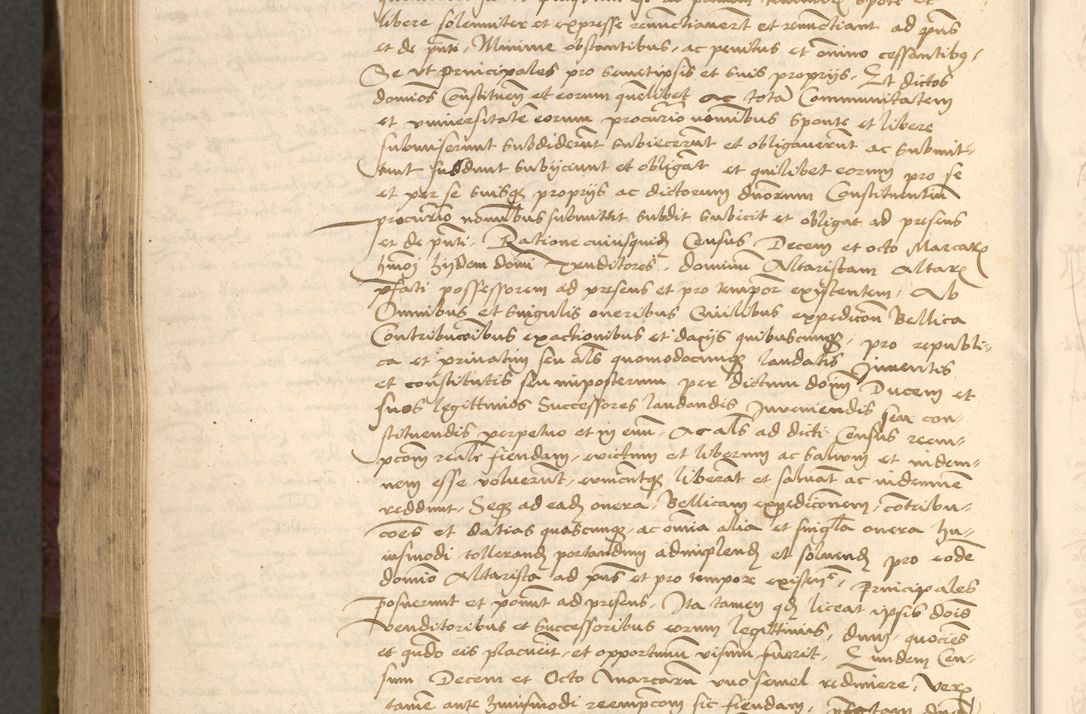 libere solenniter et expresse renuctiavert et renuctiant ad pñs
et de pñti, Minime obstantibus, ac penitus et omnino cessantibq,
Se ut Principales pro semetipsis et suis proprijs, Et dictos
dominos Constituen et eorum quelibet ac totã Communitatem
et universitatẽ eorum procurio nomibus sponte et libere
submiserunt subdiderũt subiecerũt et obligaverũt ac submit-
tunt subdunt subyciunt et obligãt et quilibet eorum pro se
et per se suisq proprijs ac dictorum duorum Constituentiũ
procurio nomibus submittit subdit subicit et obligat ad presens
et de pñti, Ratione cuiusquidẽ Census Decem et octo Marcarꝝ
hmoi hijdem domi venditores, dominum Altaristam Altarꝭ
pfati possessorem ad presens et pro tempor existentem, Ab
Omnibus et singulis oneribus Civilibus expedicõn Bellica
Contribucõibus exactionibus et dacijs quibuscunqꝫ, pro republi-
ca et privatim seu als quomodocunqꝫ laudatis Inventis
et constitutis seu inposterum per dictum dominũ Ducem et
suos legittimos Successores laudandis Inveniendis seu con-
stituendis perpetuo et in eum, Ac als ad dicti Census reem-
pcom realr fiendam, evictum et liberum ac salvum et indem-
nem esse voluerũt, eumentqꝫ liberãt et salvãt ac indemnẽ
reddunt, Seqꝫ ad eadẽ onera, Bellicam expediconem, cõtribu-
cões et datias quascunqꝫ, ac omnia alia et singla onera hu-
iusmodi tollerandẽ portandum adimplendẽ et solvendẽ pro eodẽ
domino Altarista ad pñs et pro tempore existenẽ, Principales
posuerunt et ponũt ad presens, Ita tamen qd liceat ipsis dois
venditoribus et successoribus eorum legittimis, dum, quocies
et qũdo eis placueit, et opportunũ visum fuerit, Eundem Cen-
sum Decem et Octo Marcarũ uno semel redimere, Verꝝ
tamẽ ante huiusmodi reempcom sic fiendam,